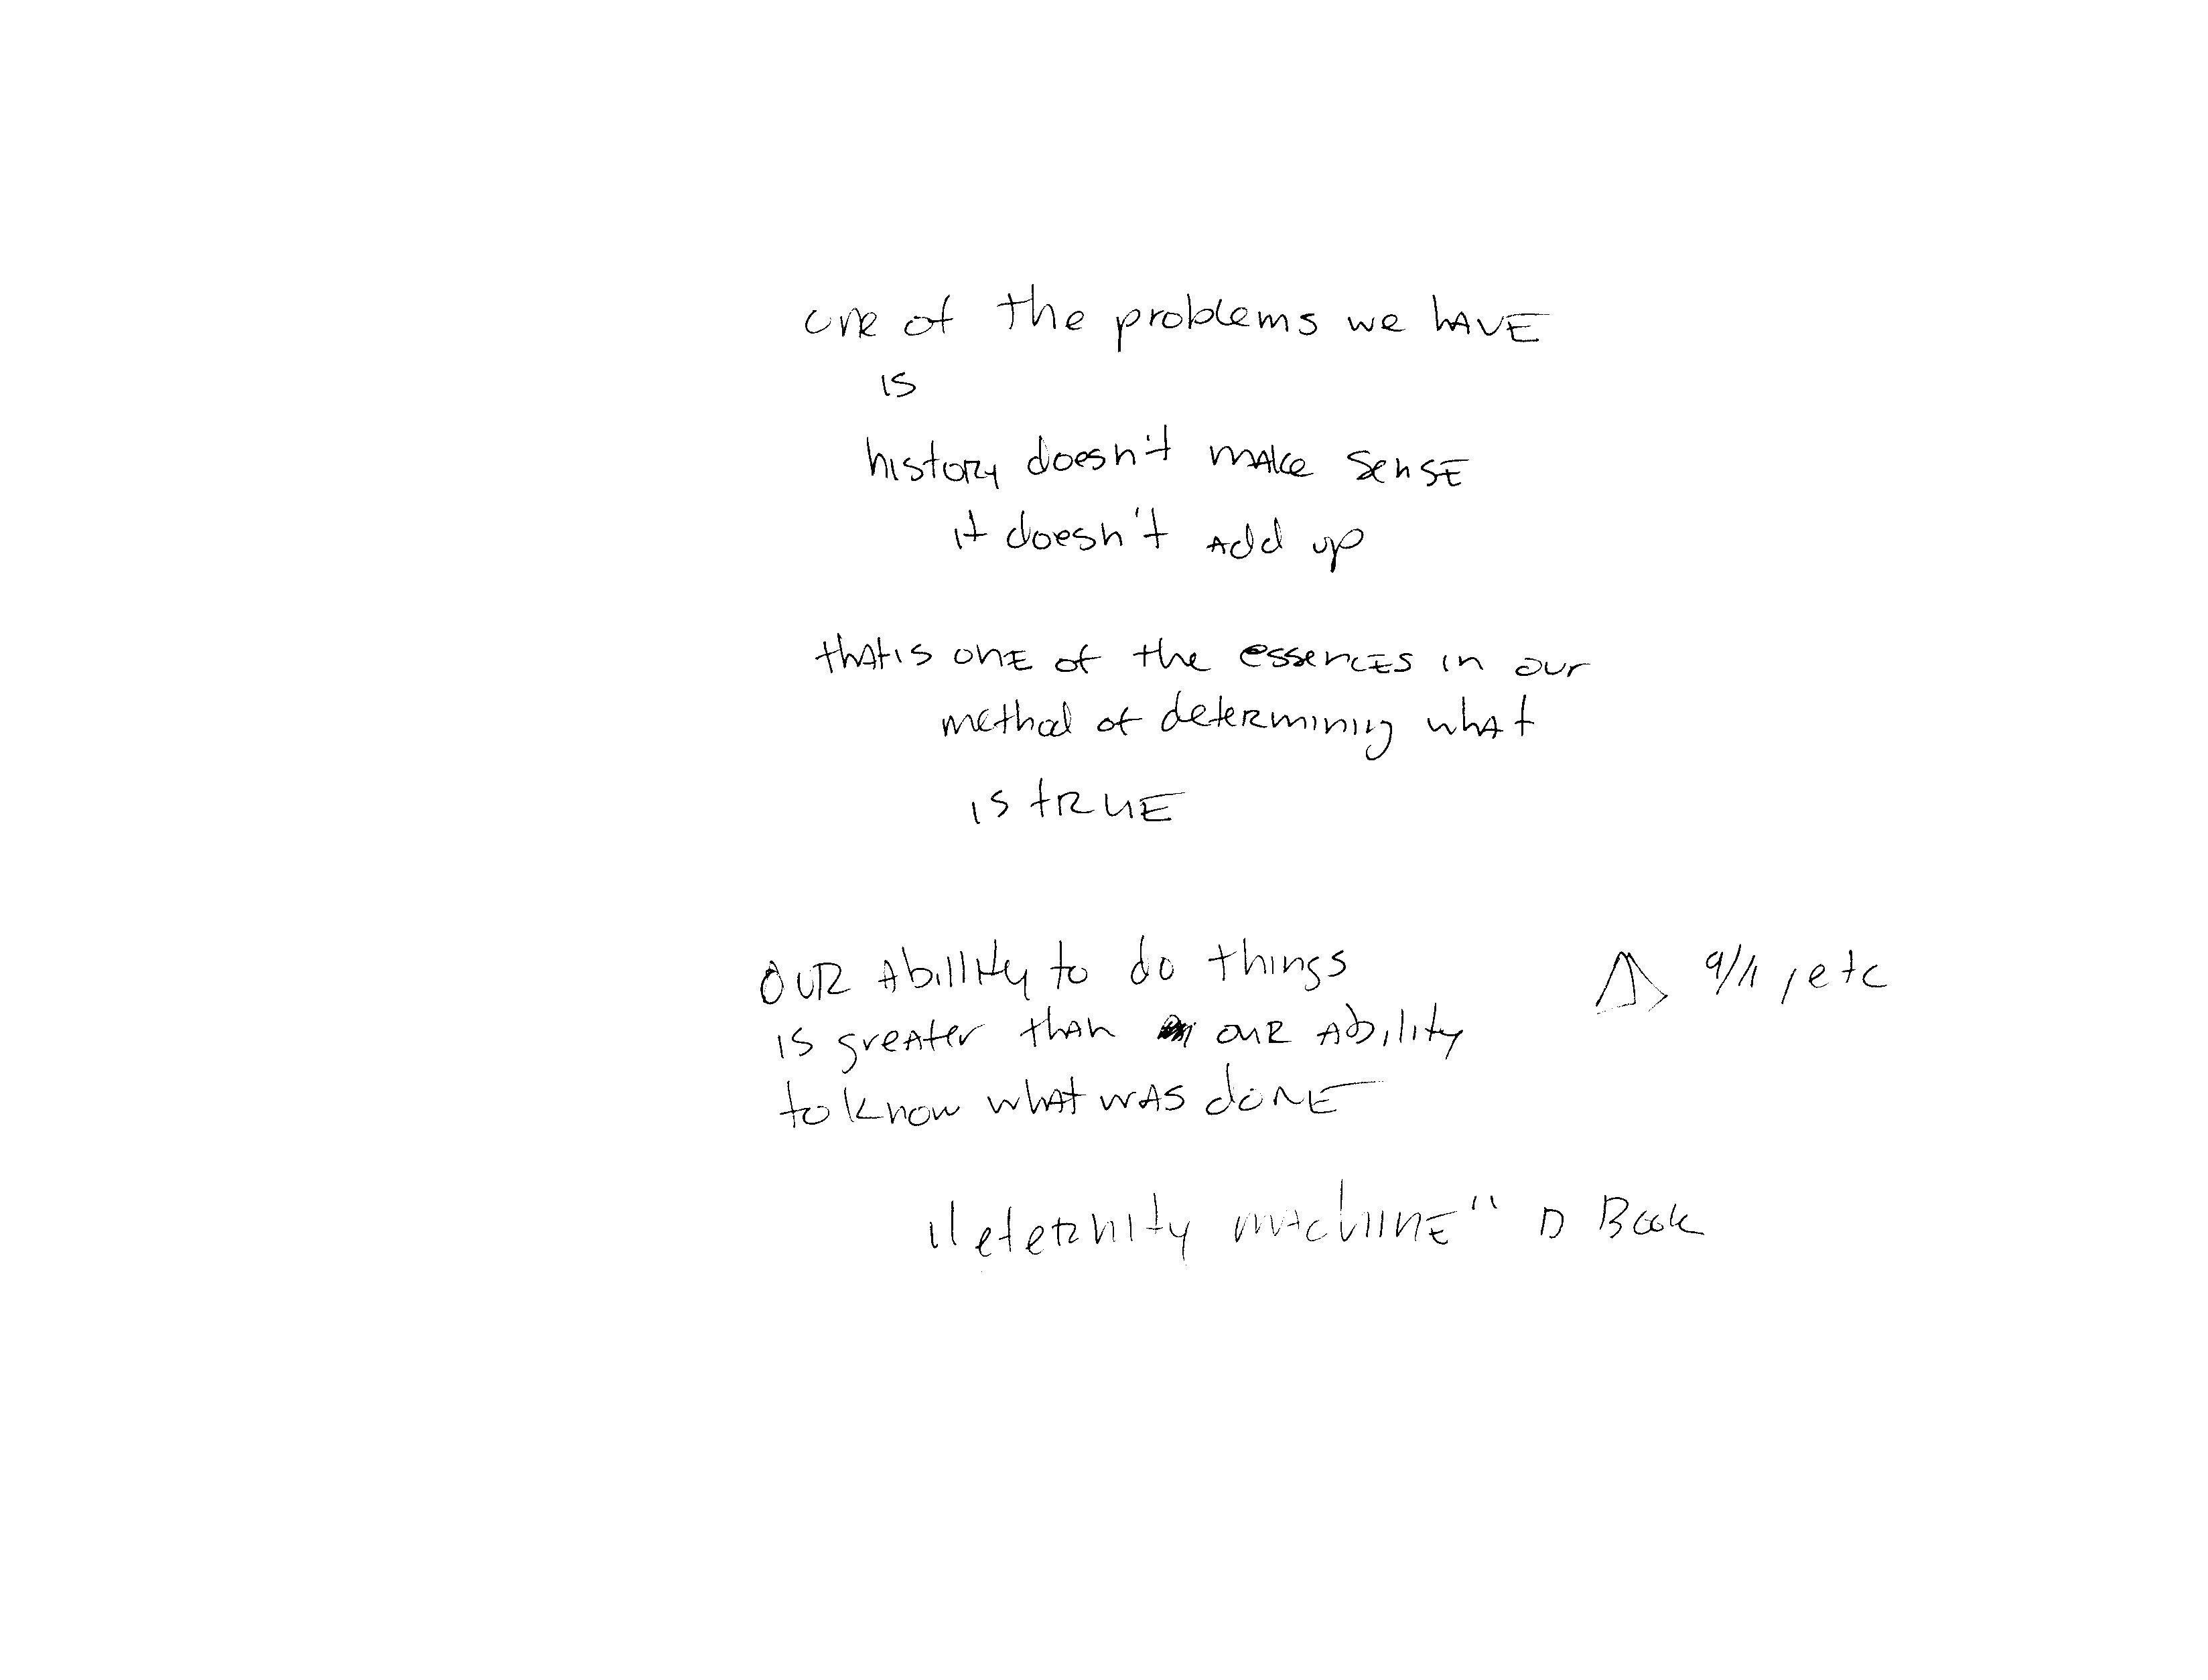 one of the problems we HAVE
is
history doesn't make sense
it doesn't add up
that is one of the essences in our
method of determining what
is true
OUR Abillity to do things
9/11, etc
is greater than our Ability
to know what was done
"eternity machine" Book